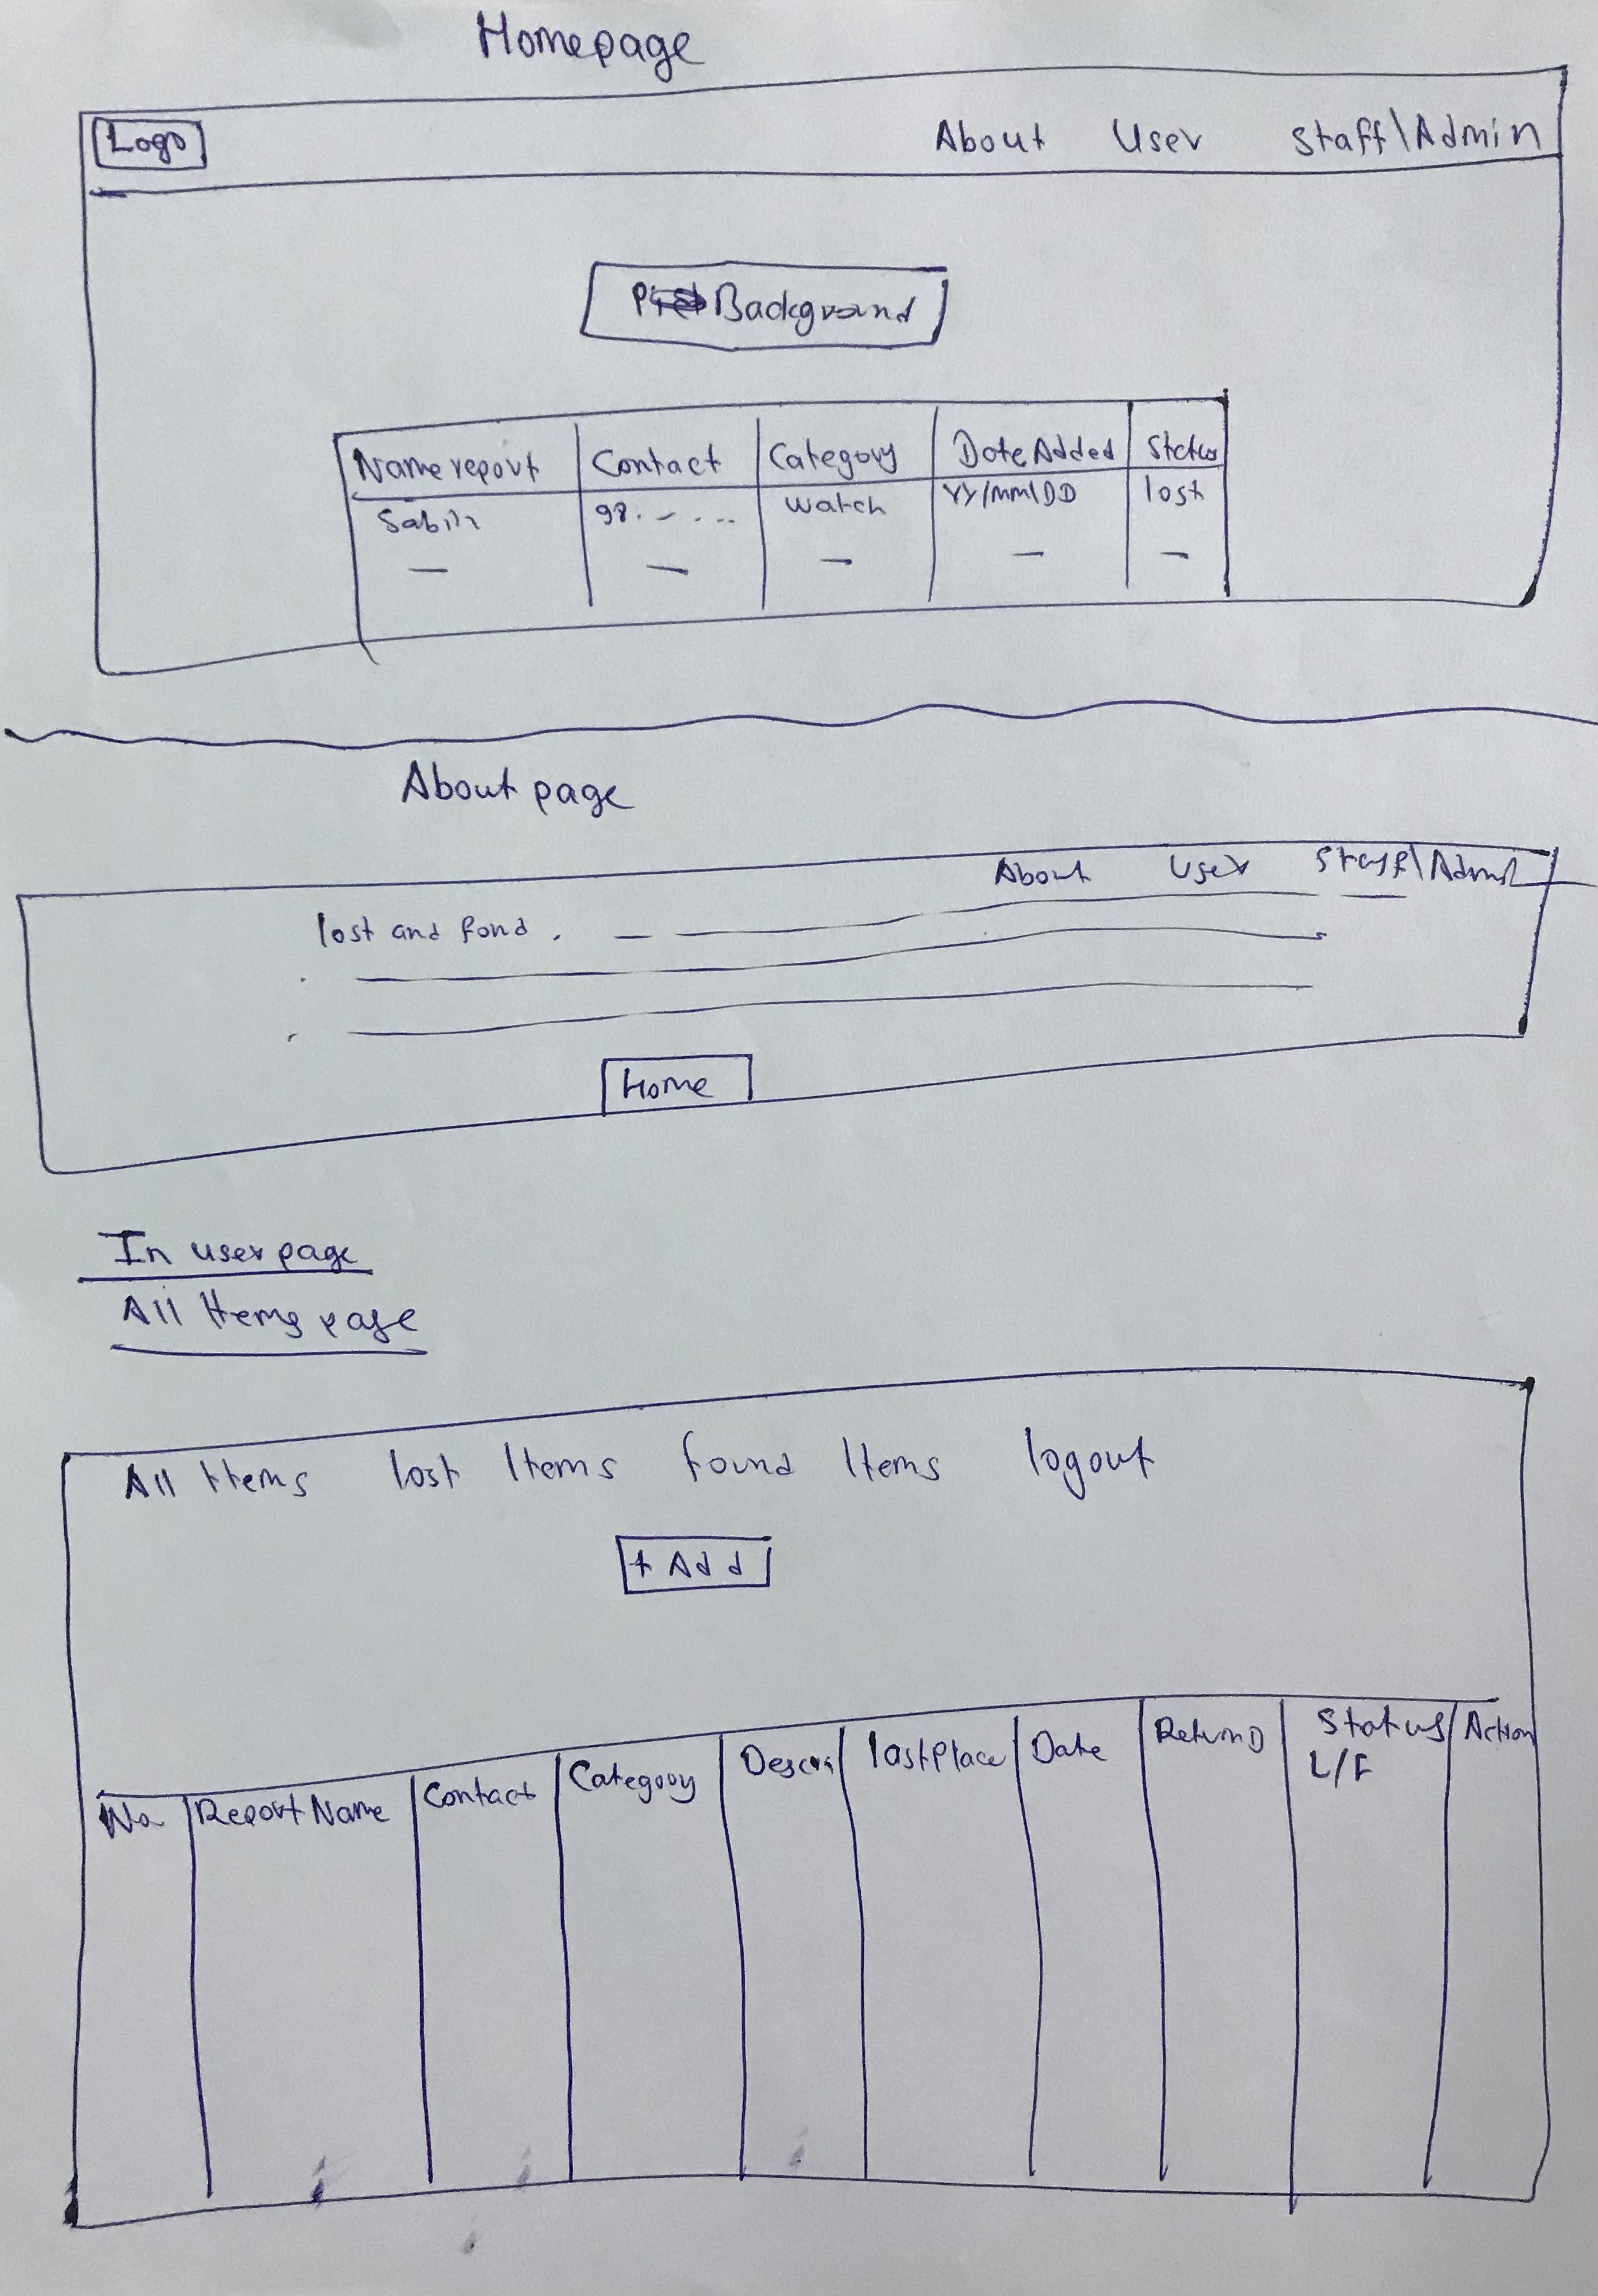 Homepage
Logo About User Staff\Admin
Background
Name report Contact Category Date Added Status
Sabin 98. - . -.. Watch YY/MM/DD lost
— — — — —
About page
About User Staff\Admin
lost and fond .
Home
In user page
All Items page
All Items lost Items found Items logout
+ Add
No Report Name Contact Category Descri lastPlace Date Return D Status L/F Action